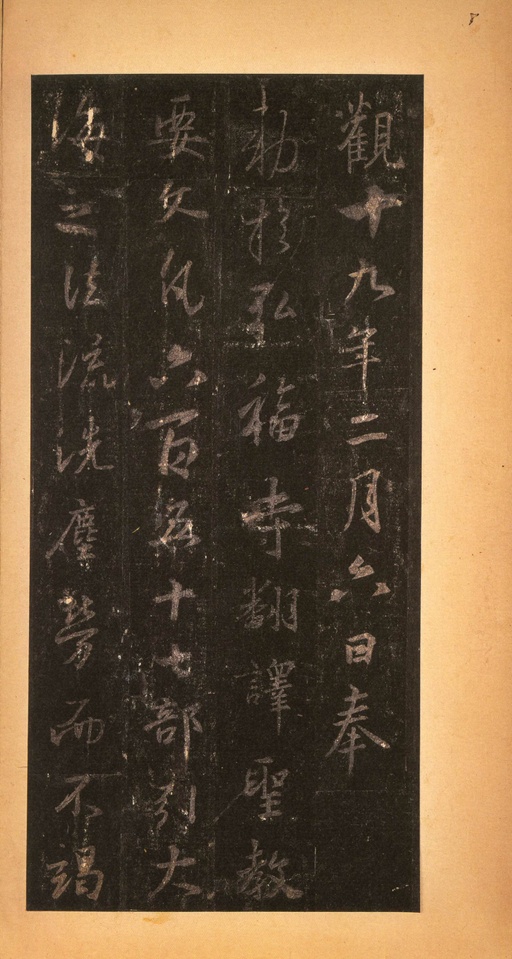 觀十九年二月六日奉
勅於弘福寺翻譯聖教
要文凡六百五十七部引大
海之法流洗塵勞而不竭